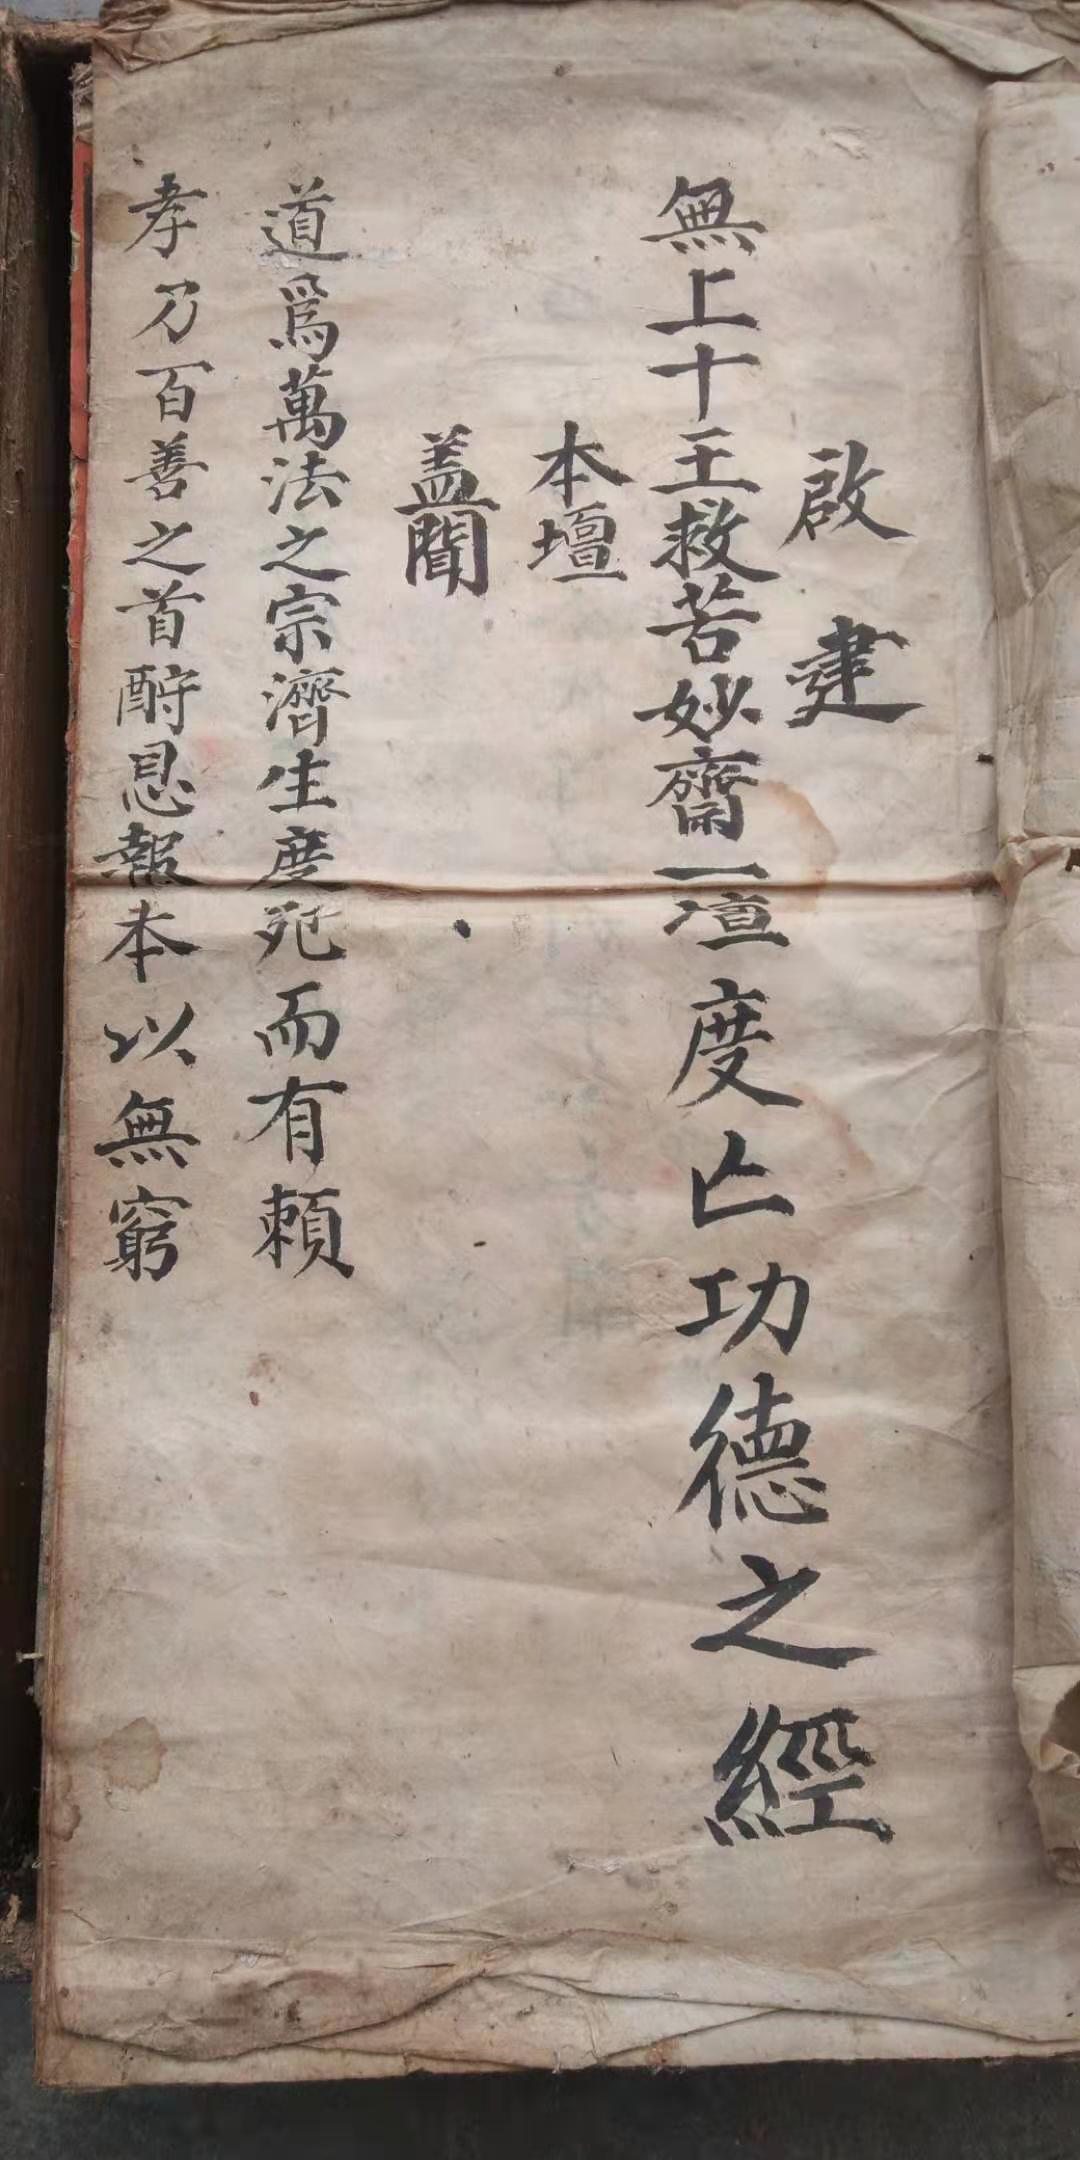 啟建
無上十王救苦妙齋一壇度亡功德之經
本壇
蓋聞
道爲萬法之宗濟生度死而有賴
孝乃百善之首酧恩報本以無窮